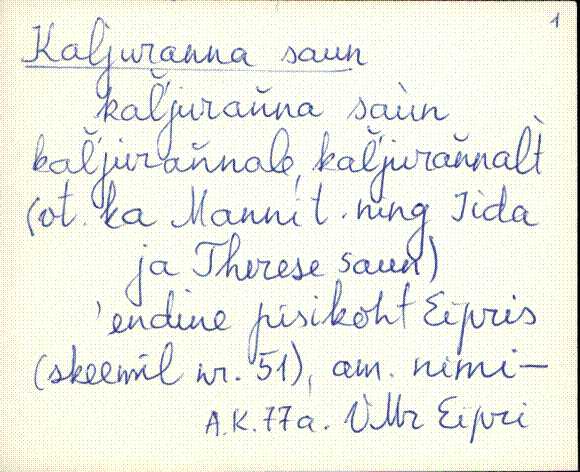 1
Kaljuranna saun
kal̆jurañna saùn
kal̆jurañnale, kal̆jurañnalt̀
(vt. ka Manni t. ning Iida
ja Therese saun)
'endine pisikoht Eipris
(skeemil nr. 51), am. nimi—
A.K. 77a. VMr Eipri